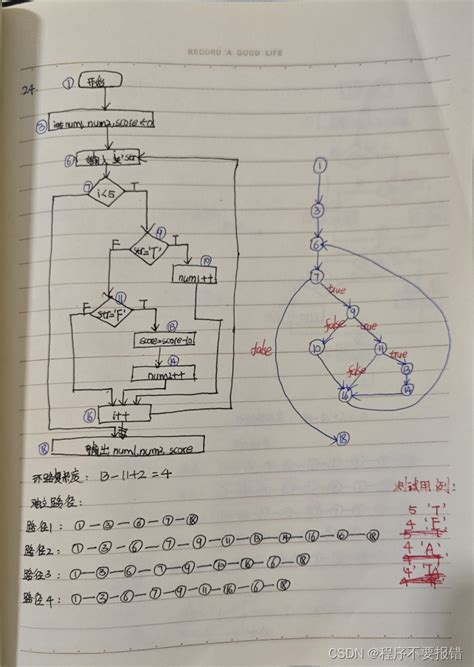 RECORD A GOOD LIFE
24.
① 开始
③ int num1,num2,score=0
⑥ 输入 i, str
⑦ i<5
T
⑨ str='T'
F
T
⑩ num1++
⑪ str='F'
F
T
⑬ score=score-10
⑭ num2++
⑯ i++
⑱ 输出 num1,num2,score
①
③
⑥
⑦
true
⑨
false
true
⑩
⑪
true
⑬
false
⑭
⑯
false
⑱
环路复杂度: 13-11+2=4
独立路径:
路径1: ①—③—⑥—⑦—⑱
路径2: ①—③—⑥—⑦—⑨—⑪—⑬—⑭—⑯—⑥—⑱
路径3: ①—③—⑥—⑦—⑨—⑩—⑯—⑥—⑱
路径4: ①—③—⑥—⑦—⑨—⑪—⑯—⑥—⑱
测试用例:
5 'T'
4 'F'
4 'A'
CSDN @程序不要报错